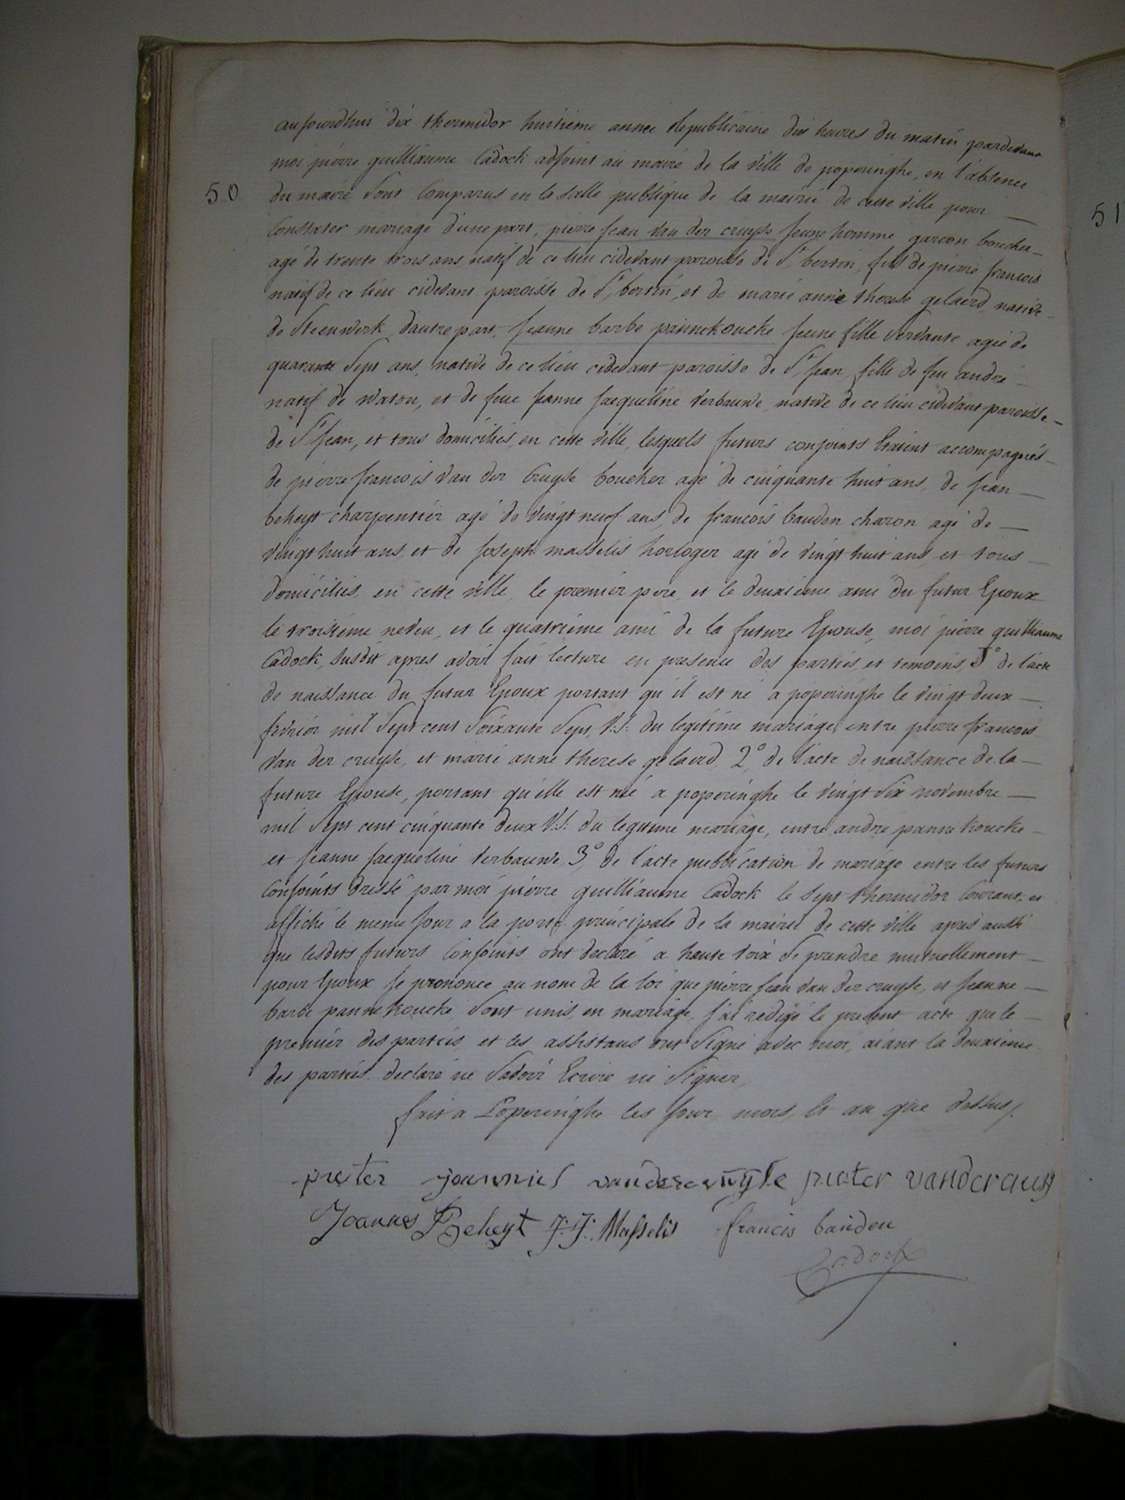 aujourdhui dix thermidor huitieme annee Republicaine dix heures du matin pardevant
moi pierre guilliaume Cadock adjoint au maire de la ville de poperinghe, en l'absence
50
du maire Sont Comparus en la Salle publique de la mairie de cette ville pour
Constater mariage d'une part, pierre Jean Van der cruyse Jeune homme garcon boucher
agé de trente trois ans natif de ce lieu cidevant paroisse de St bertin, fils de pierre francois
natif de ce lieu cidevant paroisse de St bertin, et de marie anne therese gelaerd, native
de Steenwerk, dautre part, Jeanne barbe pannekoucke Jeune fille Servante agée de
quarante Sept ans, native de ce lieu cidevant paroisse de St Jean, fille de feu andré
natif de watou, et de feue Jeanne Jacqueline terbauwe, native de ce lieu cidevant paroisse
de St Jean, et tous domiciliés en cette ville, lesquels futurs conjoints Etaient accompagnés
de pierre francois Van der Cruyse boucher agé de cinquante huit ans, de Jean
beheyt charpentier agé de vingt neuf ans, de francois bauden charon agé de
vingt huit ans, et de Joseph masselis horloger agé de vingt huit ans, et tous
domiciliés en cette ville, le premier pere et le deuxieme ami du futur Epoux
le troisieme neveu, et le quatrieme ami de la future Epouse, moi pierre guilliaume
Cadock Susdit apres avoir fait lecture en presence des parties et temoins, 1° de l'acte
de naissance du futur Epoux portant qu'il est né a poperinghe le vingt deux
fevrier mil Sept cent Soixante Sept V.S. du legitime mariage, entre pierre francois
Van der cruyse, et marie anne therese gelaerd, 2° de l'acte de naissance de la
future Epouse, portant qu'elle est née a poperinghe le vingt Six novembre
mil Sept cent cinquante deux V.S. du legitime mariage, entre andré pannekoucke
et Jeanne Jacqueline terbauwe 3° de l'acte publication de mariage entre les futurs
Conjoints dressé par moi pierre guilliaume Cadock le Sept thermidor Courant, et
affiché le meme Jour a la porte principale de la mairie de cette ville apres aussi
que lesdits futurs Conjoints ont declaré a haute voix Se prendre mutuellement
pour Epoux je prononce au nom de la loi que pierre Jean Van der cruyse, et Jeanne
barbe pannekoucke Sont unis en mariage, J'ai redigé le present acte que le
premier des parties et les assistans ont Signé avec moi, aiant la deuxieme
des parties declaré ne Savoir Ecrire ni Signer,
fait a Poperinghe les Jour mois, et an que dessus/.
pieter joannies vanderecruijse pieter vandcrauys
Joannes Beheyt J: J: Masselis francis bauden
Cadock
51